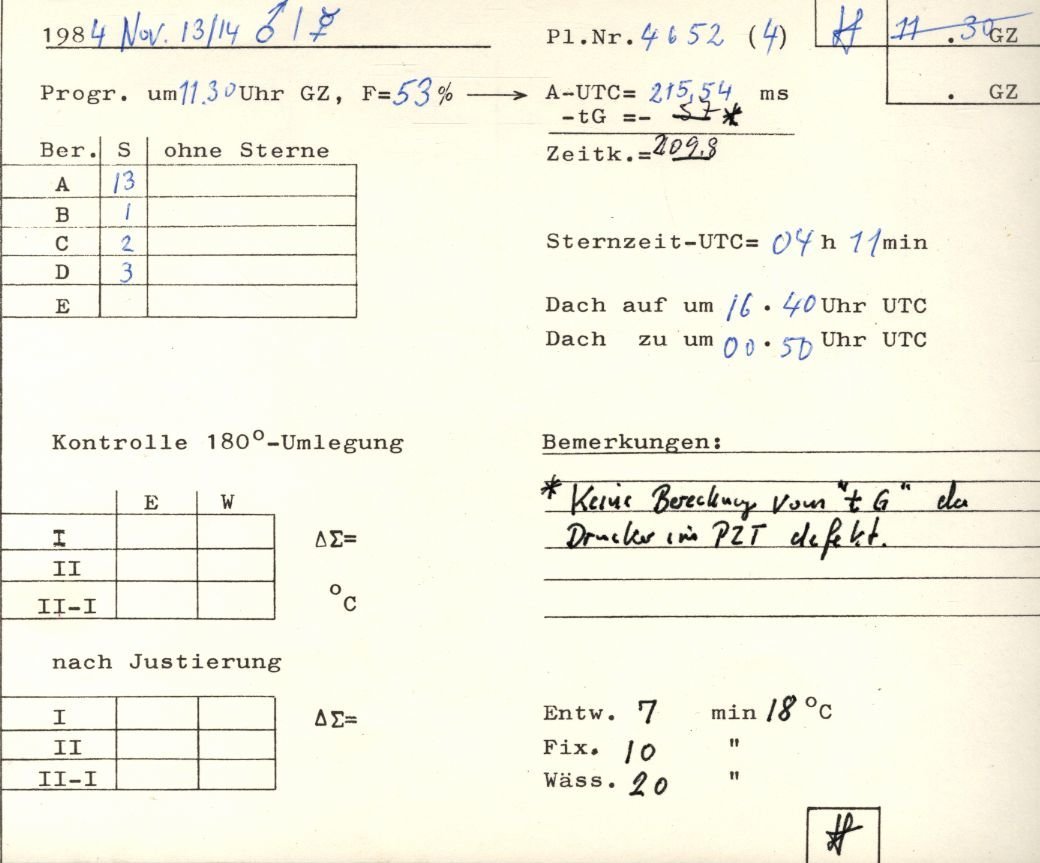 1984 Nov. 13/14 ♂ / ☿
Pl.Nr. 4652 (4)
11 . 30 GZ
. GZ
Progr. um 11.30 Uhr GZ, F=53% → A-UTC= 215,54 ms
-tG =- 57*
Zeitk.=209.8
Ber. S ohne Sterne
A 13
B 1
C 2
D 3
E
Sternzeit-UTC= 04 h 11 min
Dach auf um 16 . 40 Uhr UTC
Dach zu um 00 . 50 Uhr UTC
Kontrolle 180°-Umlegung
E W
I ΔΣ=
II
II-I °C
nach Justierung
I ΔΣ=
II
II-I
Bemerkungen:
* Keine Berechnung vom "t G" da
Drucker im PZT defekt.
Entw. 7 min 18 °C
Fix. 10 "
Wäss. 20 "